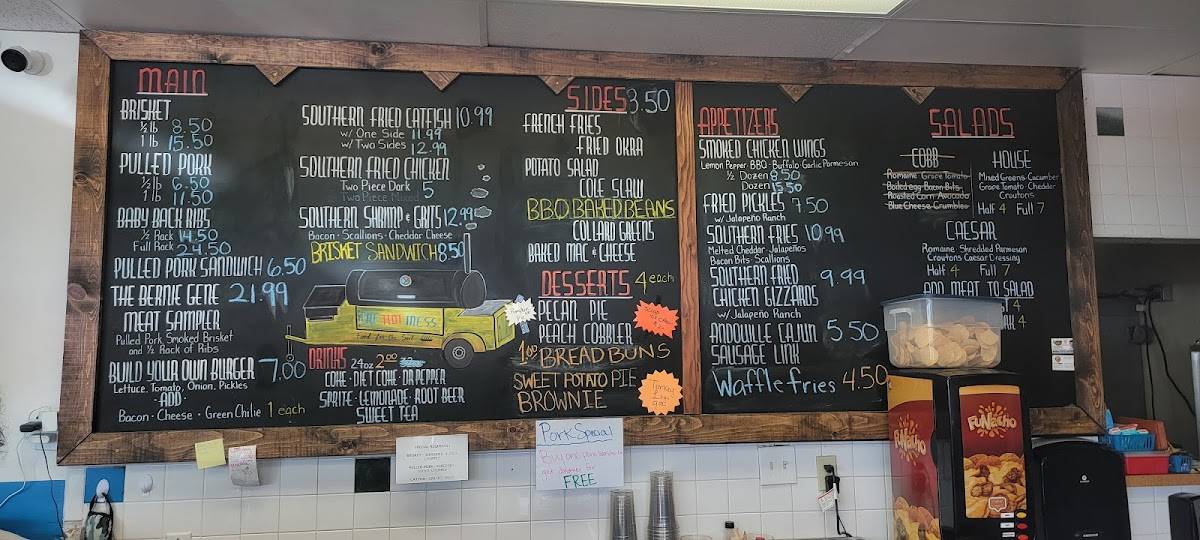 MAIN
BRISKET
½ lb 8.50
1 lb 15.50
PULLED PORK
½ lb 6.50
1 lb 11.50
BABY BACK RIBS
½ Rack 14.50
Full Rack 24.50
PULLED PORK SANDWICH 6.50
THE BERNIE GENE 21.99
MEAT SAMPLER
Pulled Pork Smoked Brisket
and ½ Rack of Ribs
BUILD YOUR OWN BURGER 7.00
Lettuce, Tomato, Onion, Pickles
·ADD·
Bacon · Cheese · Green Chilie 1 each
SOUTHERN FRIED CATFISH 10.99
w/ One Side 11.99
w/ Two Sides 12.99
SOUTHERN FRIED CHICKEN
Two Piece Dark 5
Two Piece Mixed
SOUTHERN SHRIMP & GRITS 12.99
Bacon · Scallions · Cheddar Cheese
BRISKET SANDWICH 8.50
THE HOT MESS
Food for the Soul
DRINKS 24oz 2.00
COKE · DIET COKE · DR PEPPER
SPRITE · LEMONADE · ROOT BEER
SWEET TEA
SIDES 3.50
FRENCH FRIES
FRIED OKRA
POTATO SALAD
COLE SLAW
BBQ BAKED BEANS
COLLARD GREENS
BAKED MAC & CHEESE
DESSERTS 4 each
PECAN PIE
PEACH COBBLER
1.00 BREAD BUNS
SWEET POTATO PIE
BROWNIE
APPETIZERS
SMOKED CHICKEN WINGS
Lemon Pepper · BBQ · Buffalo · Garlic Parmesan
½ Dozen 8.50
Dozen 15.50
FRIED PICKLES 7.50
w/ Jalapeño Ranch
SOUTHERN FRIES 10.99
Melted Cheddar · Jalapeños
Bacon Bits · Scallions
SOUTHERN FRIED 9.99
CHICKEN GIZZARDS
w/ Jalapeño Ranch
ANDOUILLE CAJUN 5.50
SAUSAGE LINK
Waffle fries 4.50
SALADS
COBB
Romaine Grape Tomato
Boiled egg Bacon Bits
Roasted Corn Avocado
Blue Cheese Crumbles
HOUSE
Mixed Greens · Cucumber
Grape Tomato · Cheddar
Croutons
Half 4 Full 7
CAESAR
Romaine Shredded Parmesan
Croutons Caesar Dressing
Half 4 Full 7
ADD MEAT TO SALAD
4
4
Pork Special
Buy one
FREE
FUNacho
FUNacho